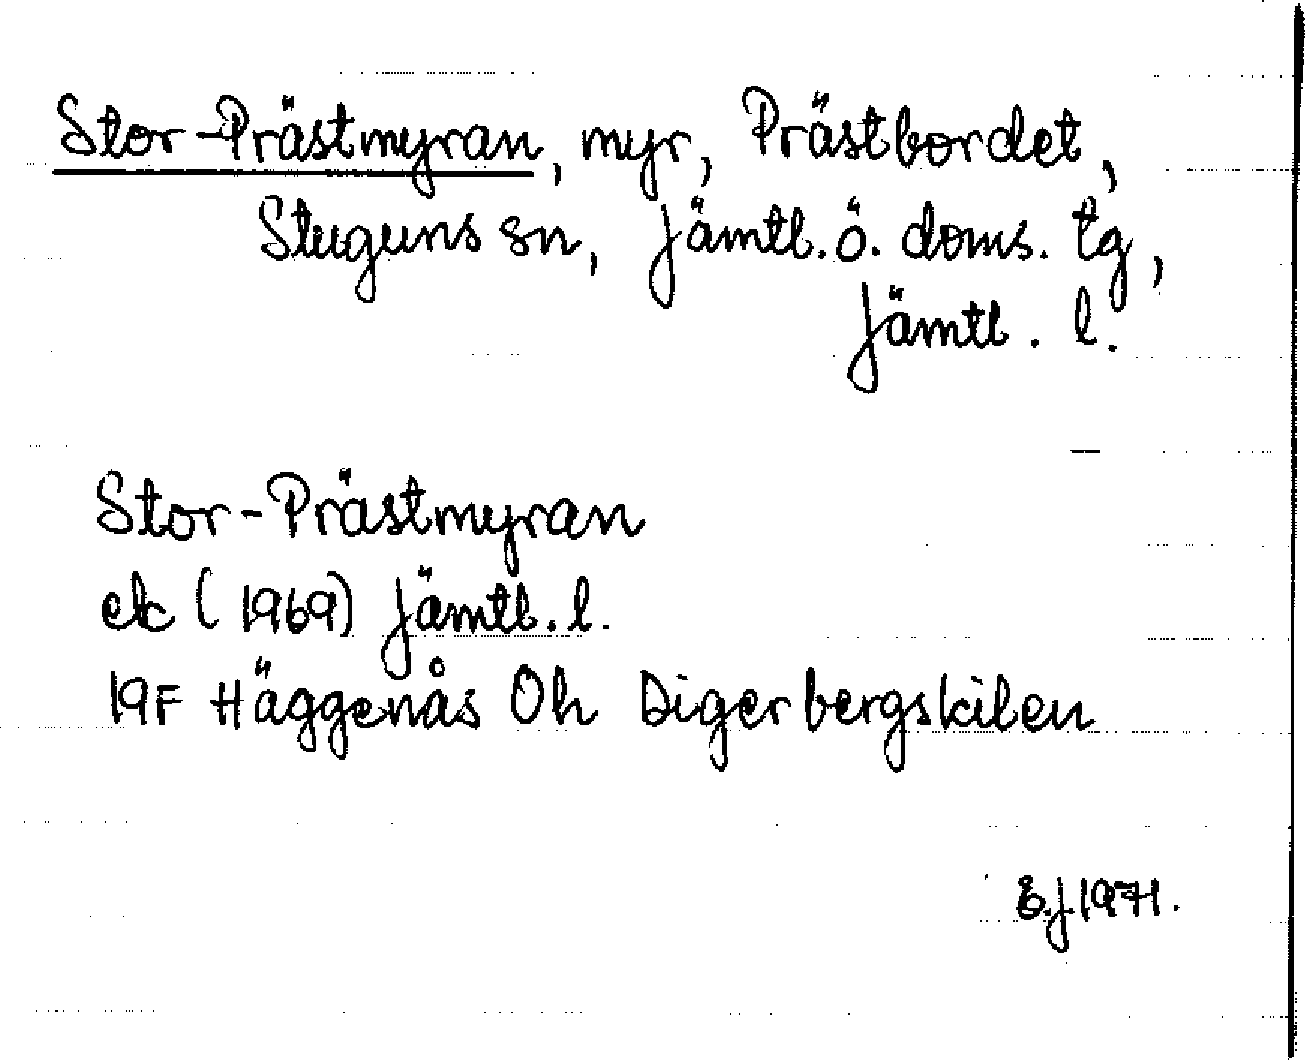 Stor-Prästmyran, myr, Prästbordet,
Stuguns sn, Jämtl. ö. doms. tg,
Jämtl. l.
Stor-Prästmyran
ek (1969) Jämtl. l.
19F Häggenås Oh Digerbergskilen
E.J 1971.